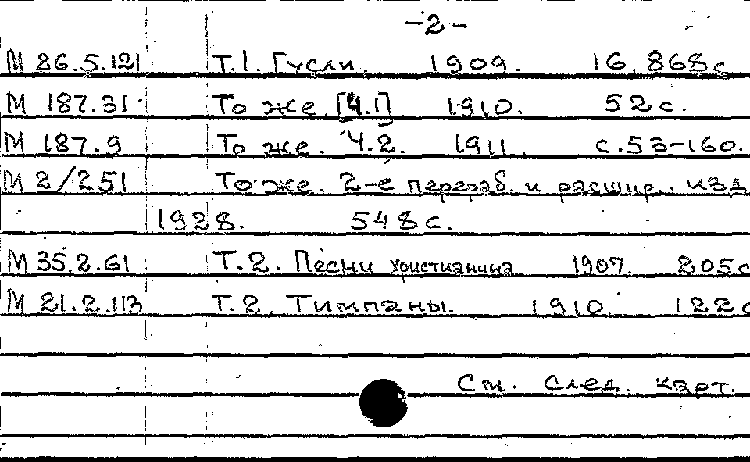 -2-
М 86.5.121 Т.1. Гусли. 1909. 16, 868 с
М 187.31 То же. [Ч.1] 1910. 52 с.
М 187.9 То же. Ч.2. 1911. с.53-160.
М 2/251 То же. 2-е перераб. и расшир. изд
1928. 548 с.
М 35.2.61 Т.2. Песни христианина 1907 205 с
М 21.2.113 Т.2. Тимпаны. 1910. 122 с
См. след. карт.